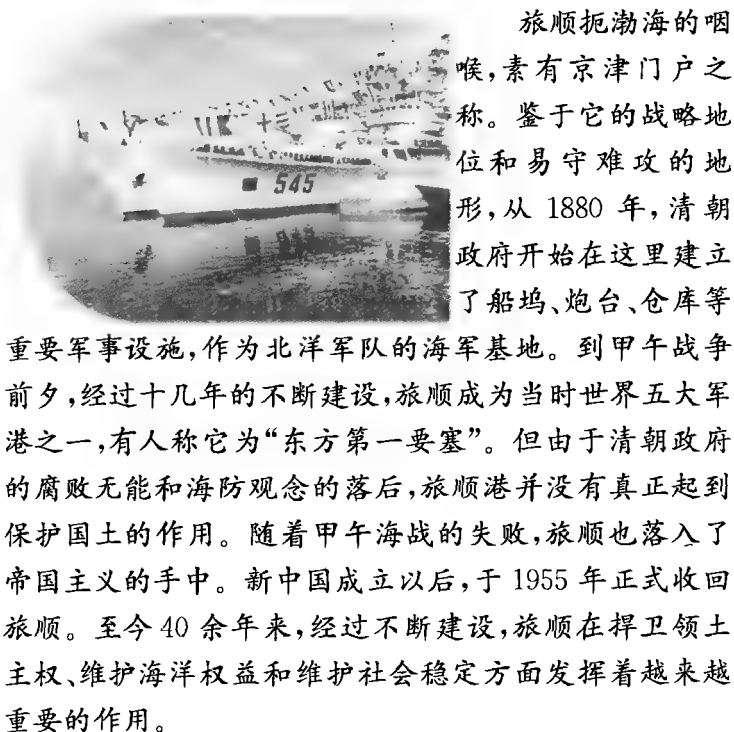 旅顺扼渤海的咽
喉,素有京津门户之
称。鉴于它的战略地
位和易守难攻的地
形,从 1880 年,清朝
政府开始在这里建立
了船坞、炮台、仓库等
545
重要军事设施,作为北洋军队的海军基地。到甲午战争
前夕,经过十几年的不断建设,旅顺成为当时世界五大军
港之一,有人称它为“东方第一要塞”。但由于清朝政府
的腐败无能和海防观念的落后,旅顺港并没有真正起到
保护国土的作用。随着甲午海战的失败,旅顺也落入了
帝国主义的手中。新中国成立以后,于 1955 年正式收回
旅顺。至今 40 余年来,经过不断建设,旅顺在捍卫领土
主权、维护海洋权益和维护社会稳定方面发挥着越来越
重要的作用。